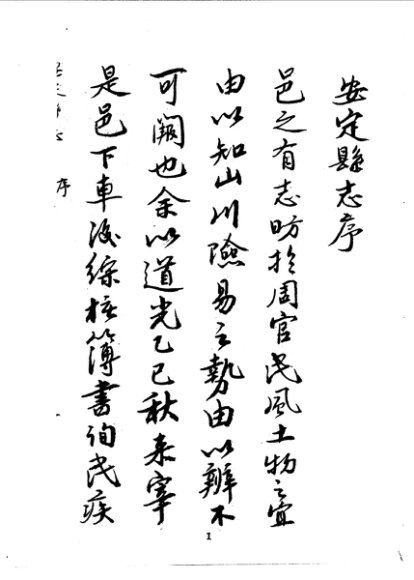 安定縣志序
邑之有志昉於周官民風土物之宜
由以知山川險易之勢由以辨不
可闕也余以道光乙巳秋來宰
是邑下車後綜核簿書詢民疾
序
1